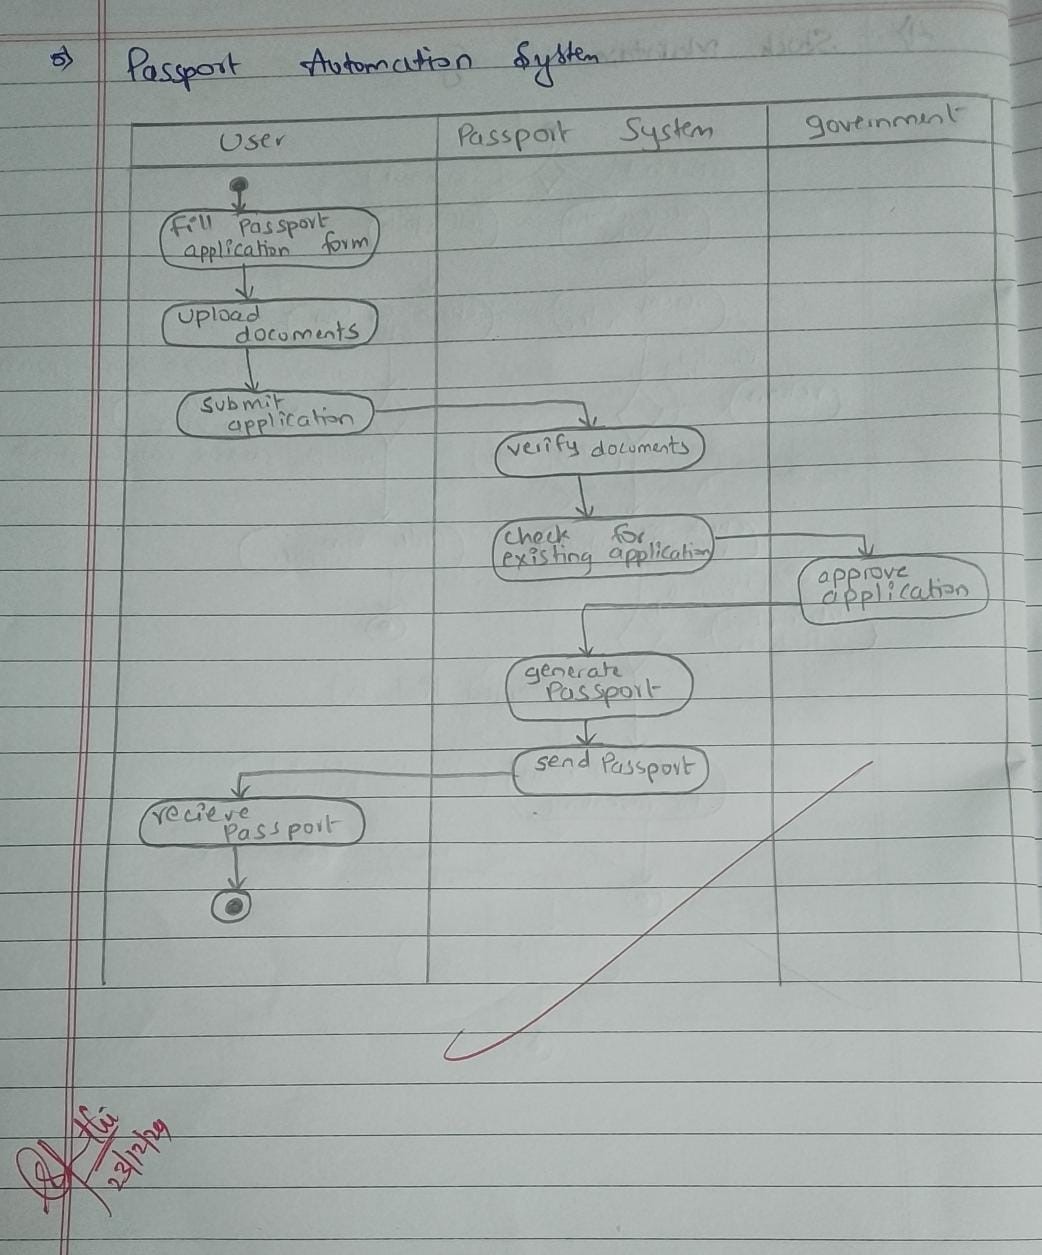 5) Passport Automation System
User Passport System government
Fill Passport
application form
Upload
documents
submit
application
verify documents
check for
existing application
approve
application
generate
Passport
send Passport
recieve
Passport